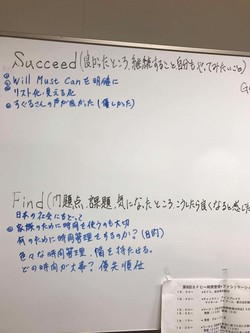 Succeed (良かったところ、継続すること、自分もやってみたいこと)
Will Must Canを明確に
リスト化、見える化
すぐるさんの声が良かった (優しかった)
G
Find (問題点、課題、気になったところ、こうしたら良くなると感じた
日本の社会にとって
家族のために時間を使うのも大切
何のために時間管理をするのか? (目的)
色々な時間管理、
を持たせる。
どの時間が大事? 優先順位